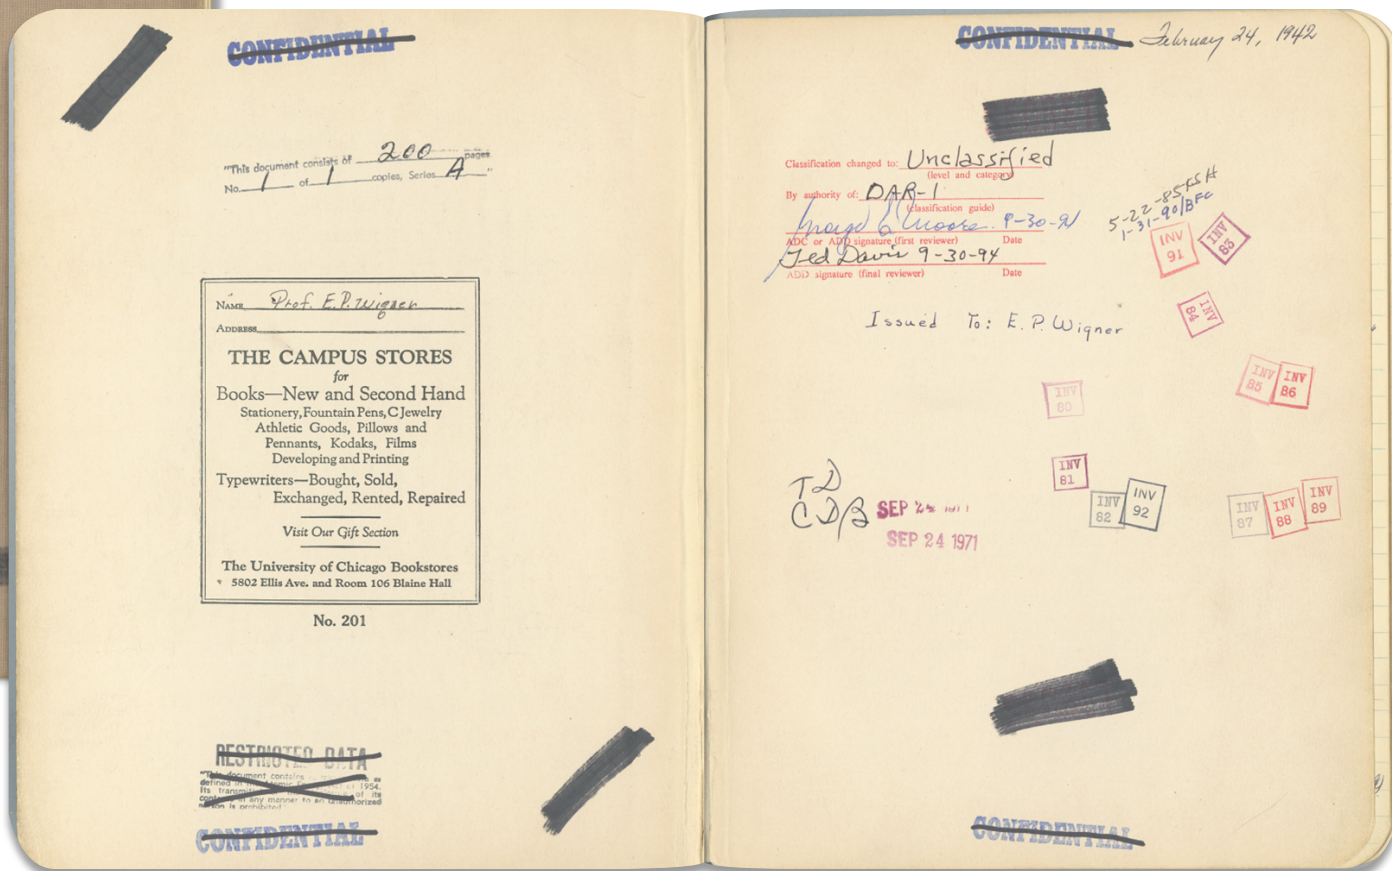 CONFIDENTIAL
"This document consists of 200 pages
No. 1 of 1 copies, Series A."
NAME Prof. E.P. Wigner
ADDRESS
THE CAMPUS STORES
for
Books—New and Second Hand
Stationery, Fountain Pens, C Jewelry
Athletic Goods, Pillows and
Pennants, Kodaks, Films
Developing and Printing
Typewriters—Bought, Sold,
Exchanged, Rented, Repaired
Visit Our Gift Section
The University of Chicago Bookstores
5802 Ellis Ave. and Room 106 Blaine Hall
No. 201
RESTRICTED DATA
"This document contains as
defined in 1954.
Its of its
in any manner to an unauthorized
person is prohibited.
CONFIDENTIAL
CONFIDENTIAL February 24, 1942
Classification changed to: Unclassified
(level and category)
By authority of: DAR-1
(classification guide)
9-30-94
ADC or ADD signature (first reviewer) Date
Ted Davis 9-30-94
ADD signature (final reviewer) Date
5-22-85 RSH
1-31-90/BFC
INV 91
INV 83
INV 84
Issued To: E. P. Wigner
INV 85
INV 86
INV 80
INV 81
INV 82
INV 92
INV 87
INV 88
INV 89
TD
CD/B
SEP 24 1971
SEP 24 1971
CONFIDENTIAL